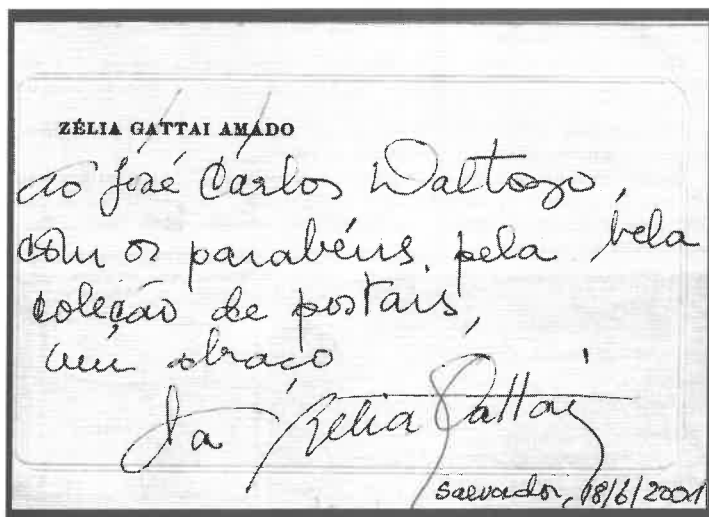 ZÉLIA GATTAI AMADO
ao José Carlos Daltozo,
com os parabéns pela bela
coleção de postais,
um abraço
da Zélia Gattai
Salvador, 18/6/2001